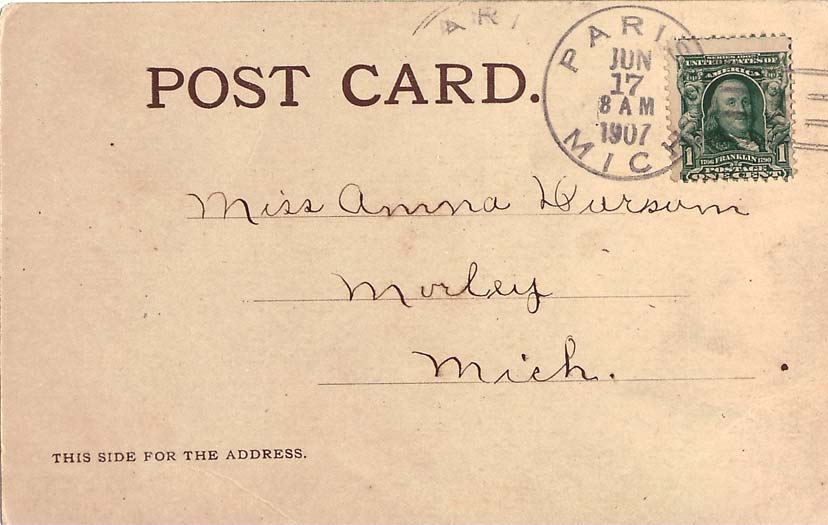 ARI
PARIS
JUN
17
8 AM
1907
MICH
SERIES 1902
UNITED STATES OF
AMERICA
1 1706 FRANKLIN 1790 1
POSTAGE
ONE CENT
POST CARD.
Miss Anna
Morley
Mich.
THIS SIDE FOR THE ADDRESS.